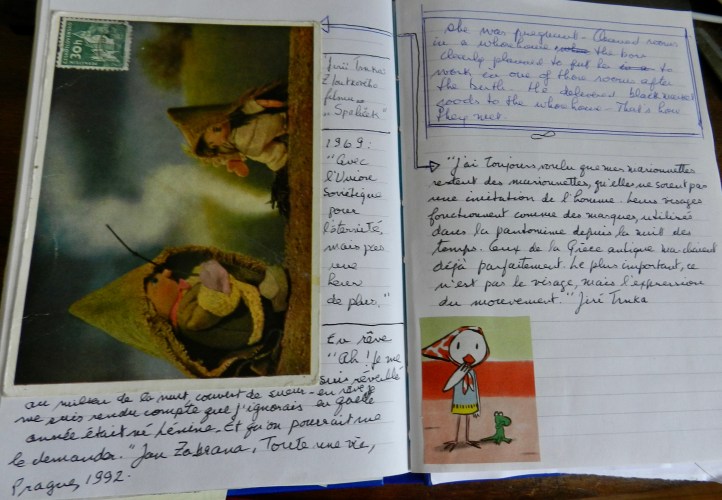 Jiří Trnka
Z loutkového
filmu
"Spalíček"
1969:
"Avec
l'Union
Soviétique
pour
l'éternité,
mais pas
une
heure
de plus."
En rêve
"Ah! Je me
suis réveillé
au milieu de la nuit, couvert de sueur - en rêve je
me suis rendu compte que j'ignorais en quelle
année était né Lénine. Et qu'on pourrait me
le demander." Jan Zabrana, Toute une vie,
Prague, 1992.
She was pregnant - Cleaned rooms
in a whorehouse the boss
clearly planned to put her to
work in one of those rooms after
the birth. He delivered black market
goods to the whorehouse - That's how
they met.
"J'ai toujours voulu que mes marionnettes
restent des marionnettes, qu'elles ne soient pas
une imitation de l'homme. Leurs visages
fonctionnent comme des masques, utilisés
dans la pantomime depuis la nuit des
temps. Ceux de la Grèce antique marchaient
déjà parfaitement. Le plus important, ce
n'est pas le visage, mais l'expression
du mouvement." Jiri Trnka